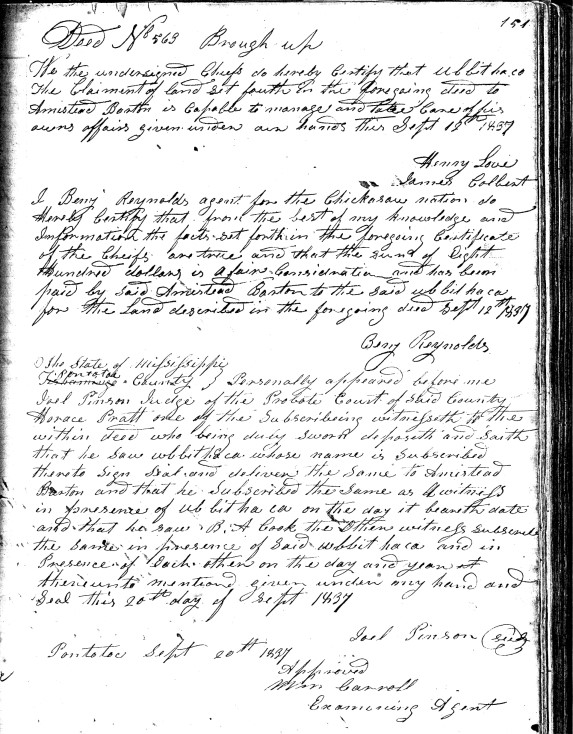 151
Deed No 563 Brough up
We the undersigned Chiefs do hereby Certify that Ubbithaca
The Claiment of land Set fourth in the foregoing deed to
Amistead Barton is Capable to manage and take Care of his
owns affairs given under our hands this Sept 12th 1837
Henry Love
James Colbert
I Benj Reynolds agent for the Chickasaw nation do
Hereby Certify that from the best of my knowledge and
Information the facts set forth in the foregoing Certificate
of the Chiefs are true and that the sum of Eight
Hundred dollars is a fair Consideration and has been
paid by said Amistead Barton to the said ubbithaca
for the Land described in the foregoing deed Sept 12th 1837
Benj Reynolds
The State of Mississippi
Pontotoc
County } Personally appeared before me
Joel Pinson Judge of the Probate Court of Said County
Horace Pratt one of the Subscribeing witnesseth to the
within deed who being duly sworn deposeth and Saith
that he saw ubbithaca whose name is Subscribed
thereto sign Seal and deliver the same to Amistead
Barton and that he Subscribed the Same as a witness
in presence of Ubbithaca on the day it beareth date
and that he saw B. A Cook the other witness Subscribe
the same in presence of Said ubbithaca and in
Presence of Each other on the day and year
thereunto mentioned given under my hand and
Seal this 20th day of Sept 1837
Joel Pinson Seal
Pontotoc Sept 20th 1837
Approved
Wm Carroll
Examining Agent